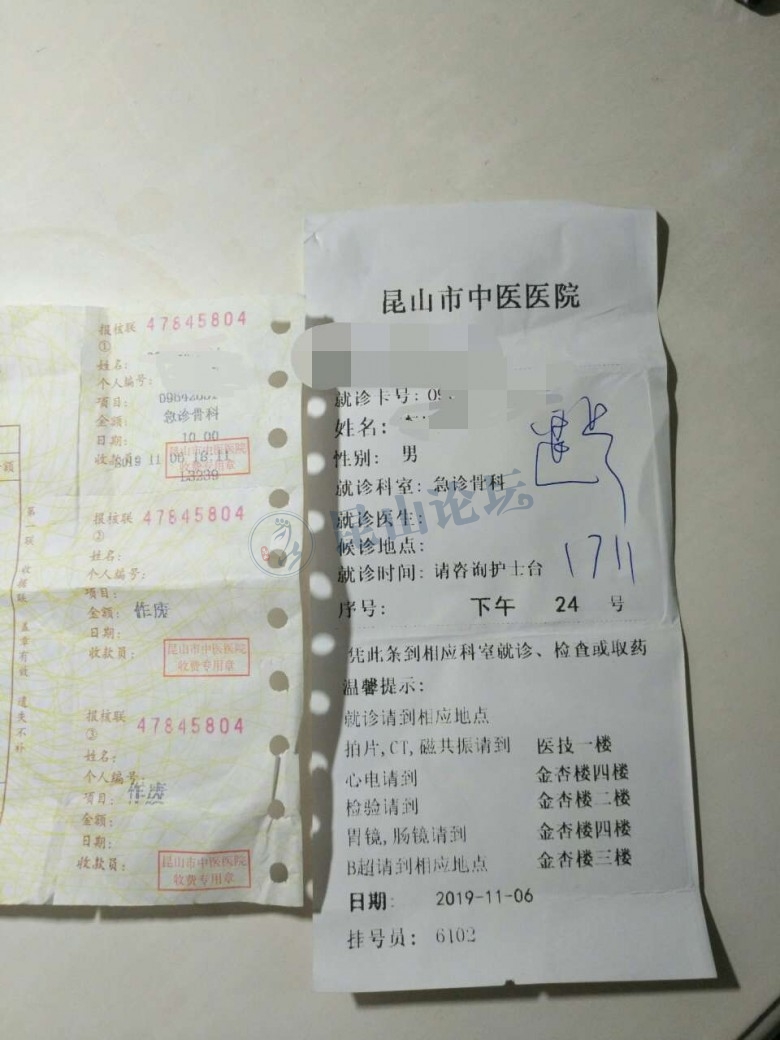 报核联 47845804
①
姓名：
个人编号：
项目：
急诊骨科
金额：
10.00
日期：
2019 11 06 18:11
收款员：
L3239
昆山市中医医院
收费专用章
报核联 47845804
②
姓名：
个人编号：
项目：
金额： 作废
日期：
收款员：
昆山市中医医院
收费专用章
报核联 47845804
③
姓名：
个人编号：
项目： 作废
金额：
日期：
收款员：
昆山市中医医院
收费专用章
额
第一联 收据联 盖章有效 遗失不补
昆山市中医医院
就诊卡号：09
姓名：
性别： 男
就诊科室：急诊骨科
就诊医生：
候诊地点：
就诊时间：请咨询护士台
1711
序号： 下午 24 号
凭此条到相应科室就诊、检查或取药
温馨提示：
就诊请到相应地点
拍片,CT,磁共振请到 医技一楼
心电请到 金杏楼四楼
检验请到 金杏楼二楼
胃镜,肠镜请到 金杏楼四楼
B超请到相应地点 金杏楼三楼
日期： 2019-11-06
挂号员： 6102
昆山论坛